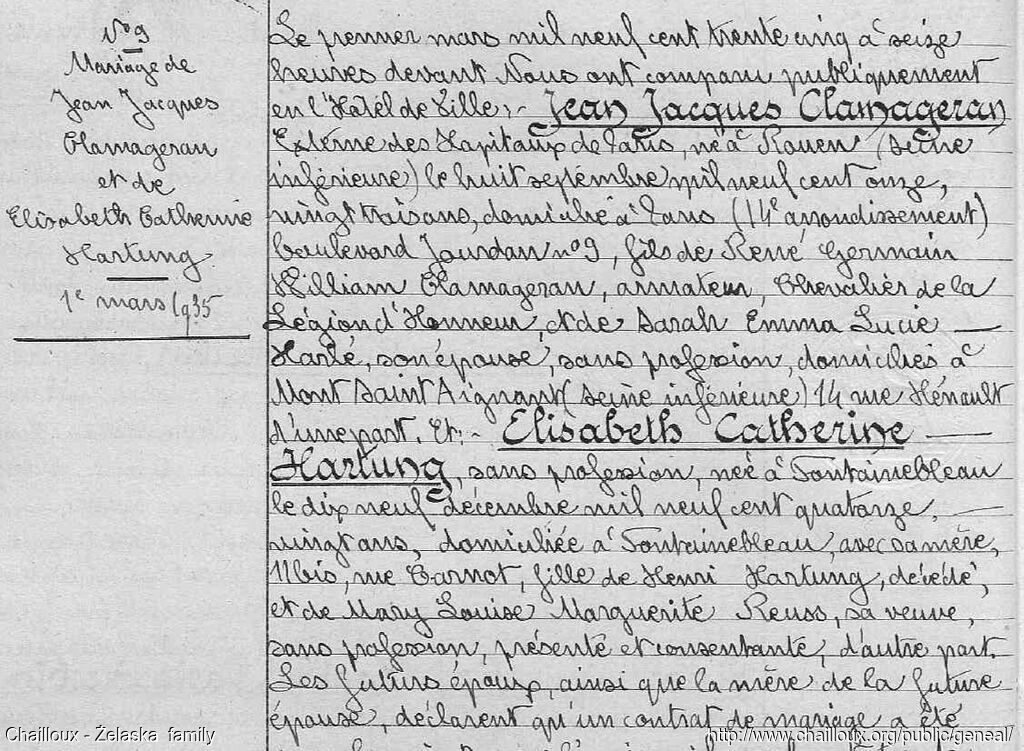 N° 9
Mariage de
Jean Jacques
Clamageran
et de
Elisabeth Catherine
Hartung
1e mars 1935
Le premier mars mil neuf cent trente cinq à seize
heures devant Nous ont comparu publiquement
en l'Hôtel de Ville :- Jean Jacques Clamageran
Externe des Hôpitaux de Paris, né à Rouen (Seine
inférieure) le huit septembre mil neuf cent onze,
vingt trois ans, domicilié à Paris (14e arrondissement)
boulevard Jourdan n° 9, fils de René Germain
William Clamageran, armateur, Chevalier de la
Légion d'Honneur, et de Sarah Emma Lucie
Harlé, son épouse, sans profession, domiciliés à
Mont Saint Aignant (Seine inférieure) 14 rue Hénault
d'une part. Et :- Elisabeth Catherine
Hartung, sans profession, née à Fontainebleau
le dix neuf décembre mil neuf cent quatorze,
vingt ans, domiciliée à Fontainebleau, avec sa mère,
11 bis, rue Carnot, fille de Henri Hartung, décédé,
et de Mary Louise Marguerite Reuss, sa veuve,
sans profession, présente et consentante, d'autre part.
Les futurs époux, ainsi que la mère de la future
épouse, déclarent qu'un contrat de mariage a été
Chailloux - Żelaska family
http://www.chailloux.org/public/geneal/